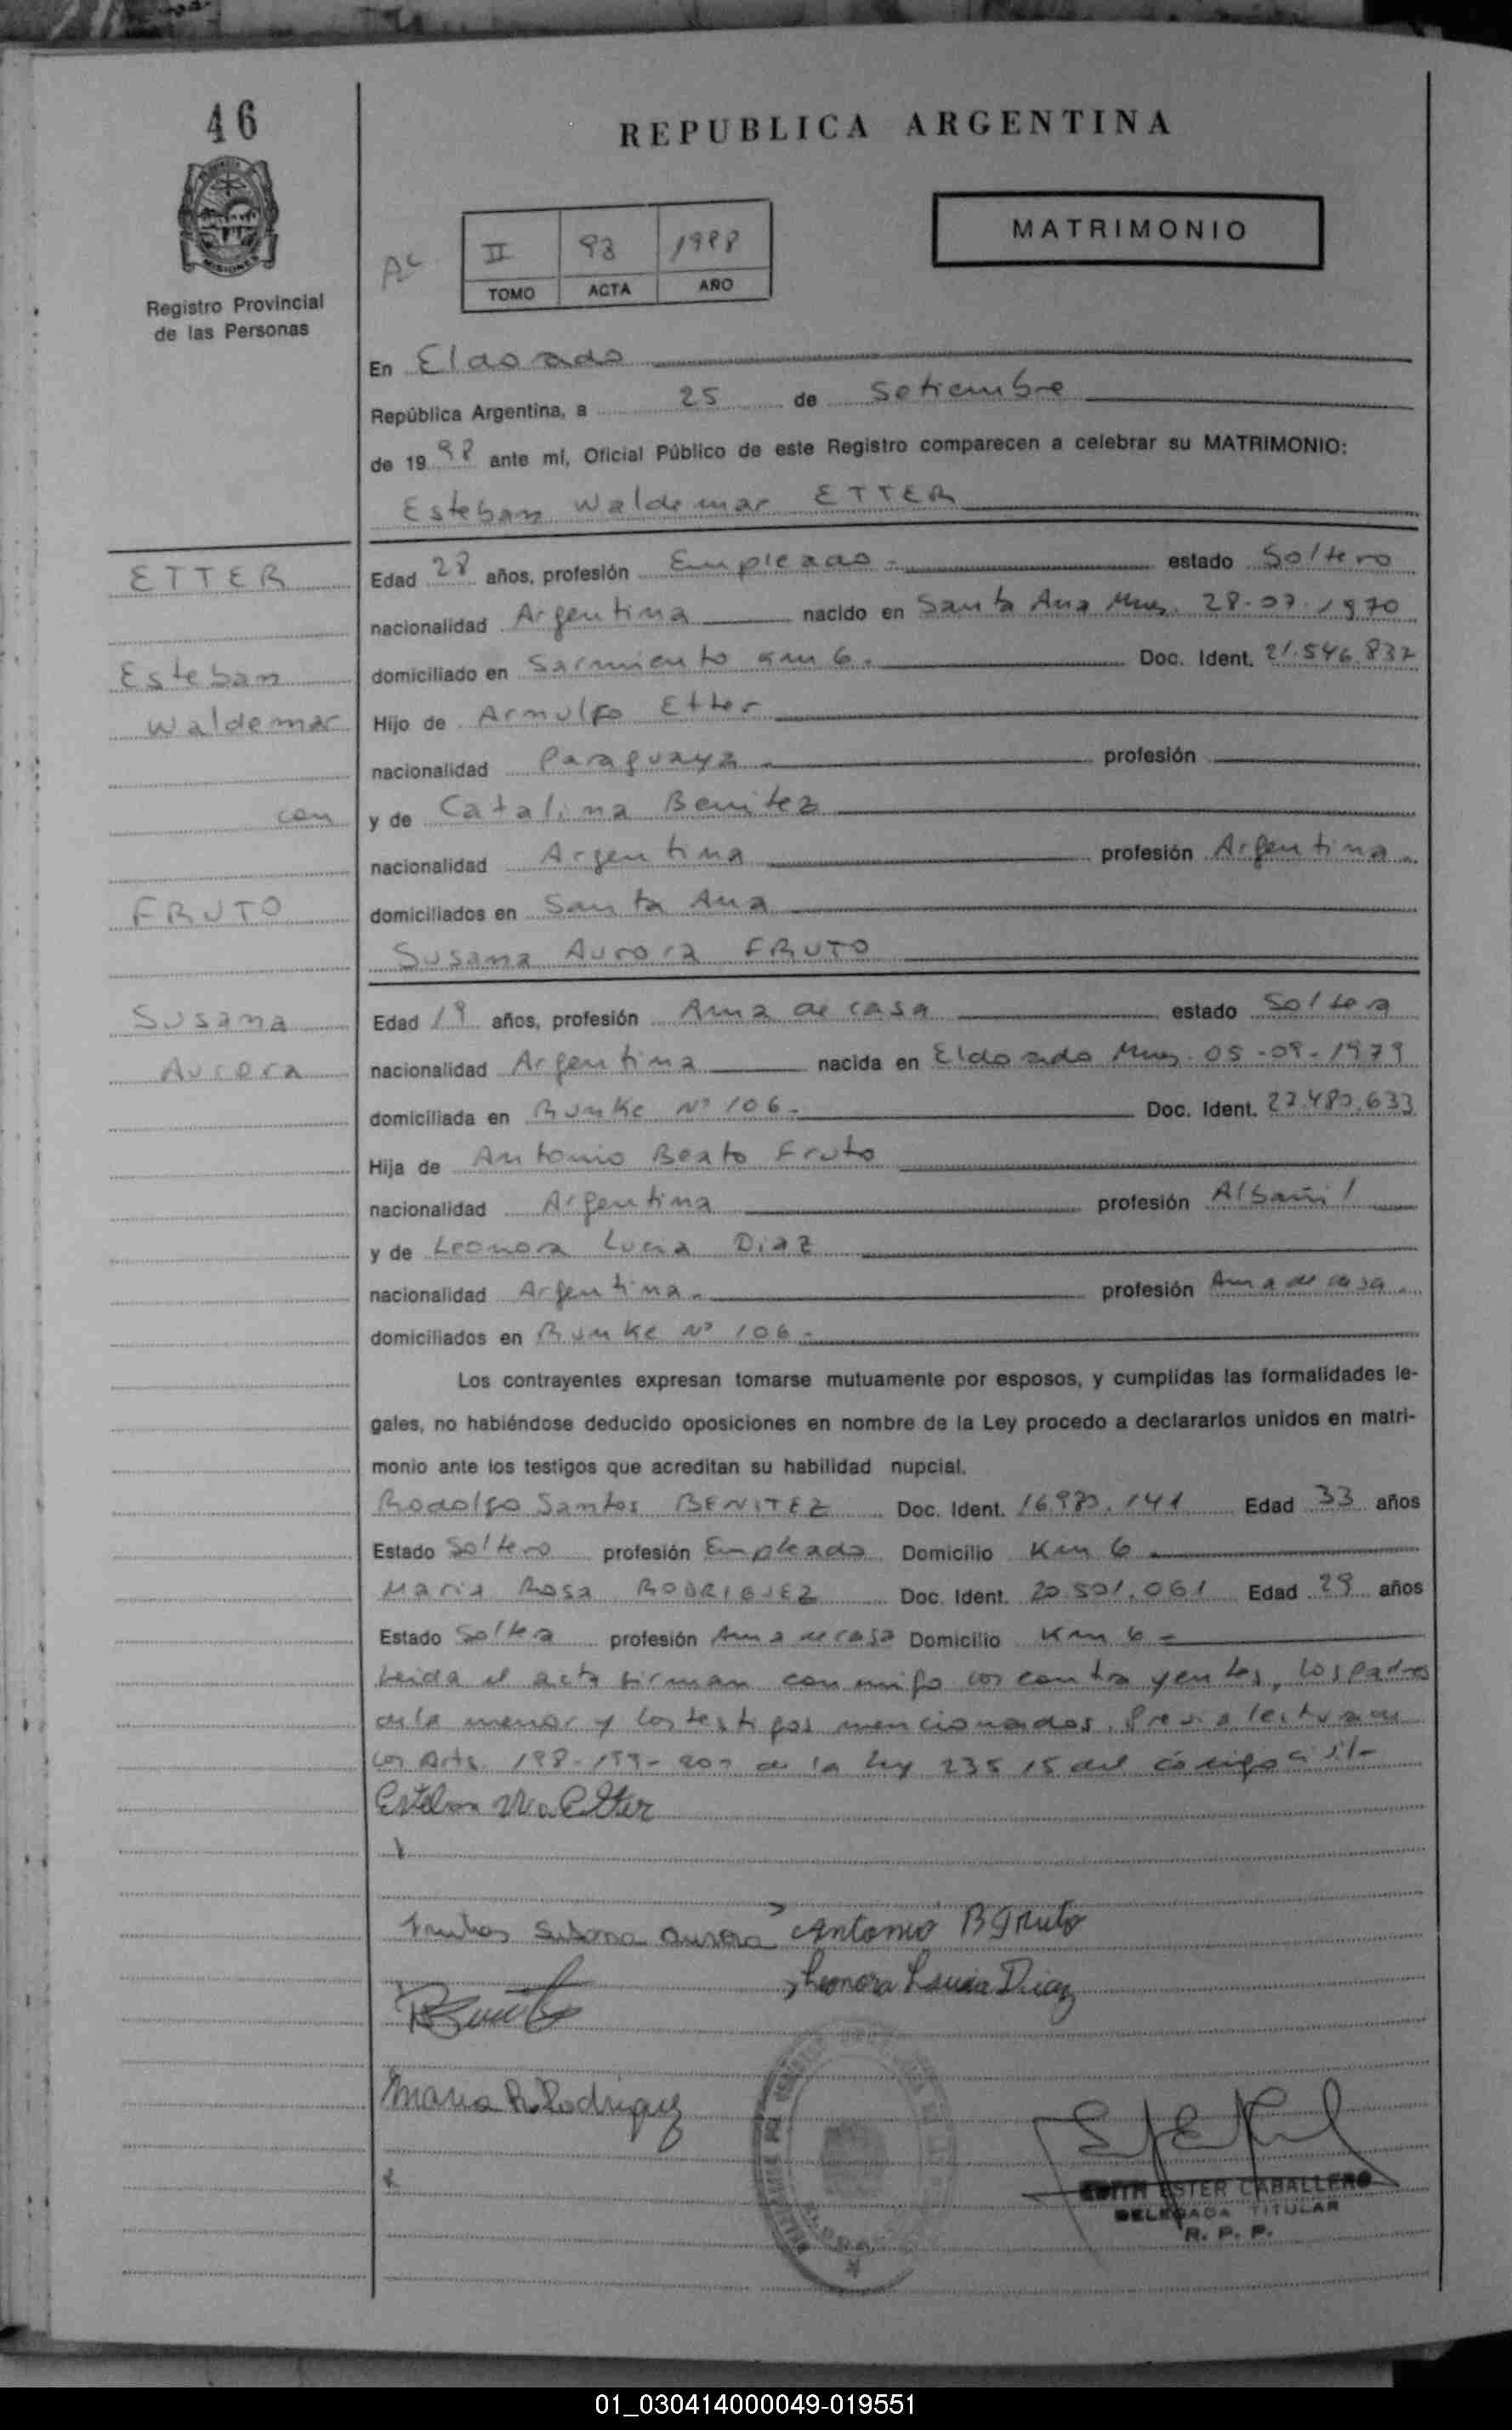 46
REPUBLICA ARGENTINA
MISIONES
Registro Provincial
de las Personas
II 93 1998
TOMO ACTA AÑO
MATRIMONIO
En Eldorado
República Argentina, a 25 de Setiembre
de 19 98 ante mí, Oficial Público de este Registro comparecen a celebrar su MATRIMONIO:
Esteban Waldemar ETTER
ETTER
Esteban
Waldemar
con
FRUTO
Susana
Aurora
Edad 28 años, profesión Empleado - estado Soltero
nacionalidad Argentina nacido en Santa Ana Mnes. 28-07-1970
domiciliado en Sarmiento km 6. Doc. Ident. 21.546.837
Hijo de Arnulfo Etter
nacionalidad Paraguaya profesión
y de Catalina Benitez
nacionalidad Argentina profesión Argentina.
domiciliados en Santa Ana
Susana Aurora FRUTO
Edad 19 años, profesión Ama de casa estado Soltera
nacionalidad Argentina nacida en Eldorado Mnes. 05-09-1979
domiciliada en Runke Nº 106- Doc. Ident. 27.480.633
Hija de Antonio Beato Fruto
nacionalidad Argentina profesión Albañil
y de Leonora Lucia Diaz
nacionalidad Argentina. profesión Ama de casa.
domiciliados en Runke Nº 106-
Los contrayentes expresan tomarse mutuamente por esposos, y cumplidas las formalidades le-
gales, no habiéndose deducido oposiciones en nombre de la Ley procedo a declararlos unidos en matri-
monio ante los testigos que acreditan su habilidad nupcial.
Rodolfo Santos BENITEZ Doc. Ident. 16.980.141 Edad 33 años
Estado Soltero profesión Empleado Domicilio Km 6
Maria Rosa RODRIGUEZ Doc. Ident. 20.501.061 Edad 29 años
Estado Soltera profesión Ama de casa Domicilio Km 6 -
Leida el acta firman conmigo los contrayentes, los padres
de la menor y los testigos mencionados. Previa lectura de
los Arts. 198-199-200 de la ley 23515 del código civil-
Esteban Wa Etter
Frutos Susana Aurora Antonio B Fruto
Leonora Lucia Diaz
Maria R. Rodriguez
EDITH ESTER CABALLERO
DELEGADA TITULAR
R. P. P.
01_030414000049-019551